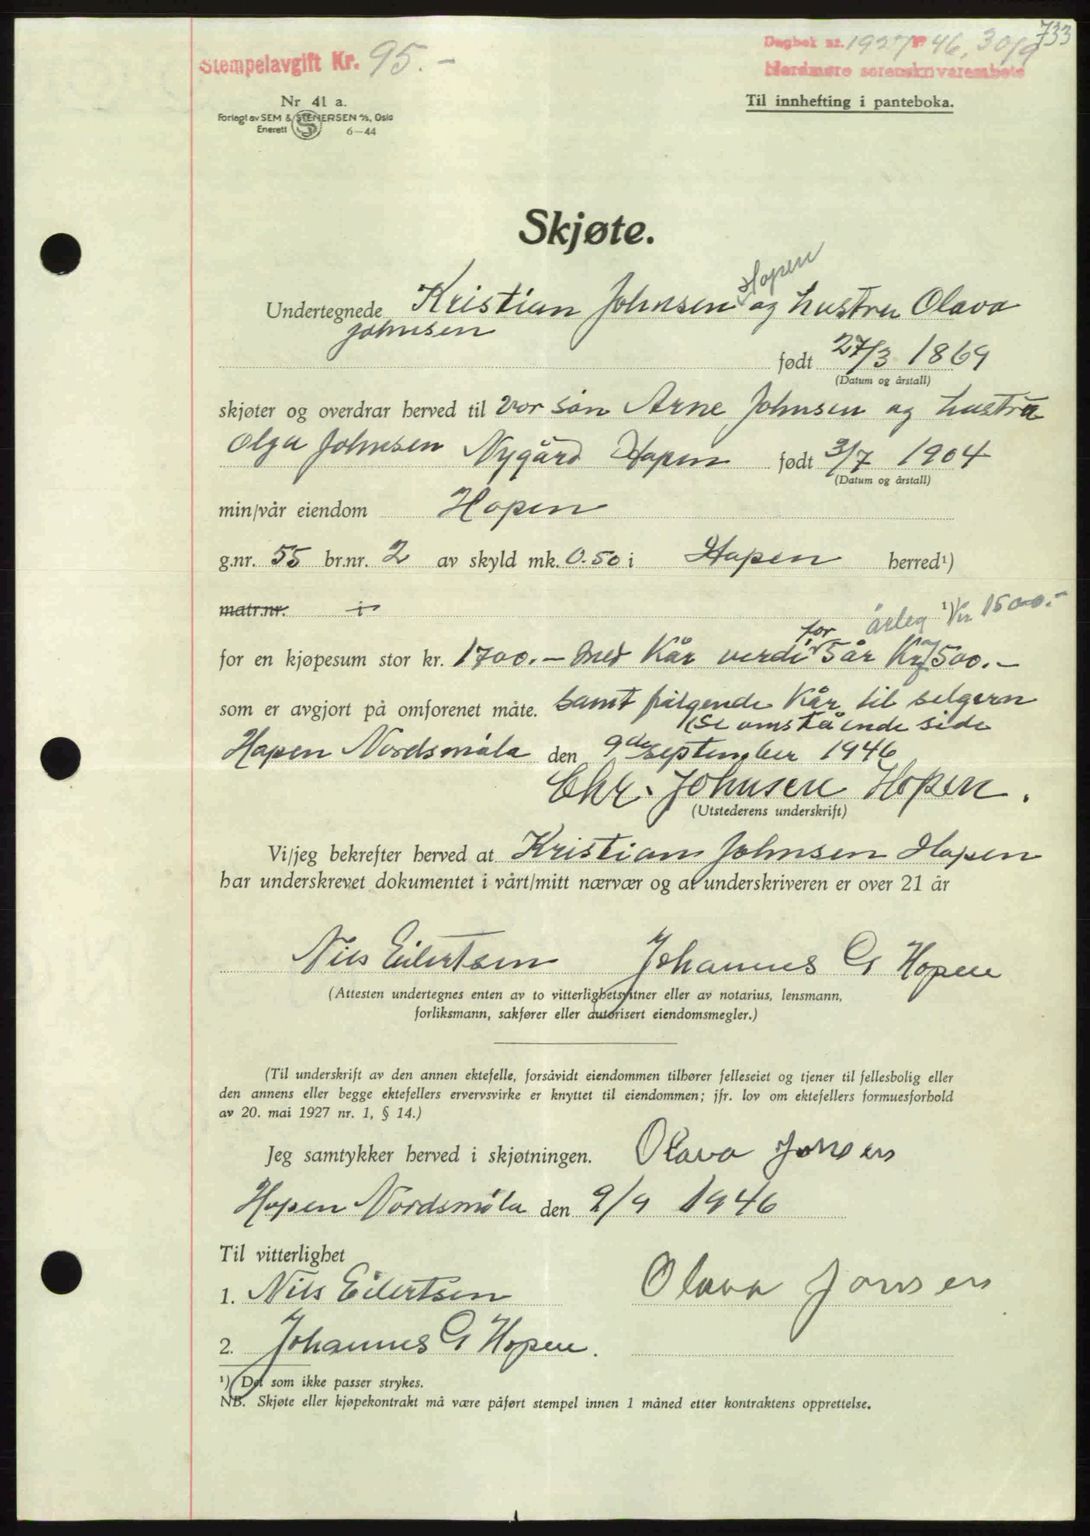 733
Stempelavgift Kr. 95.-
Dagbok nr. 1927 1946, 30/9
Nordmøre sorenskriverembete
Nr 41 a.
Forlagt av SEM & STENERSEN A/S, Oslo
Enerett 6-44
Til innhefting i panteboka.
Skjøte.
Hopen
Undertegnede Kristian Johnsen og hustru Olava
Johnsen
født 27/3 1869
(Datum og årstall)
skjøter og overdrar herved til vor søn Arne Johnsen og hustru
Olga Johnsen Nygård Hopen født 3/7 1904
(Datum og årstall)
min/vår eiendom Hopen
g.nr. 55 br.nr. 2 av skyld mk. 0.50 i Hopen herred¹)
matr.nr. i
årleg kr 1500.-
for
for en kjøpesum stor kr. 1700.- med Kår verdi 5 år Kr 7500.-
som er avgjort på omforenet måte. samt følgende Kår til selgern
(Se omstående side
Hopen Nordsmøla den 9de september 1946
Chr. Johnsen Hopen.
(Utstederens underskrift)
Vi/jeg bekrefter herved at Kristian Johnsen Hopen
har underskrevet dokumentet i vårt/mitt nærvær og at underskriveren er over 21 år
Nils Eilertsen Johannes G Hopen
(Attesten undertegnes enten av to vitterlighetsvitner eller av notarius, lensmann,
forliksmann, sakfører eller autorisert eiendomsmegler.)
(Til underskrift av den annen ektefelle, forsåvidt eiendommen tilhører felleseiet og tjener til fellesbolig eller
den annens eller begge ektefellers ervervsvirke er knyttet til eiendommen; jfr. lov om ektefellers formuesforhold
av 20. mai 1927 nr. 1, § 14.)
Jeg samtykker herved i skjøtningen. Olava Jonsen
Hopen Nordsmøla den 9/9 1946
Til vitterlighet
1. Nils Eilertsen Olava Jonsen
2. Johannes G Hopen.
¹) Det som ikke passer strykes.
NB. Skjøte eller kjøpekontrakt må være påført stempel innen 1 måned etter kontraktens opprettelse.